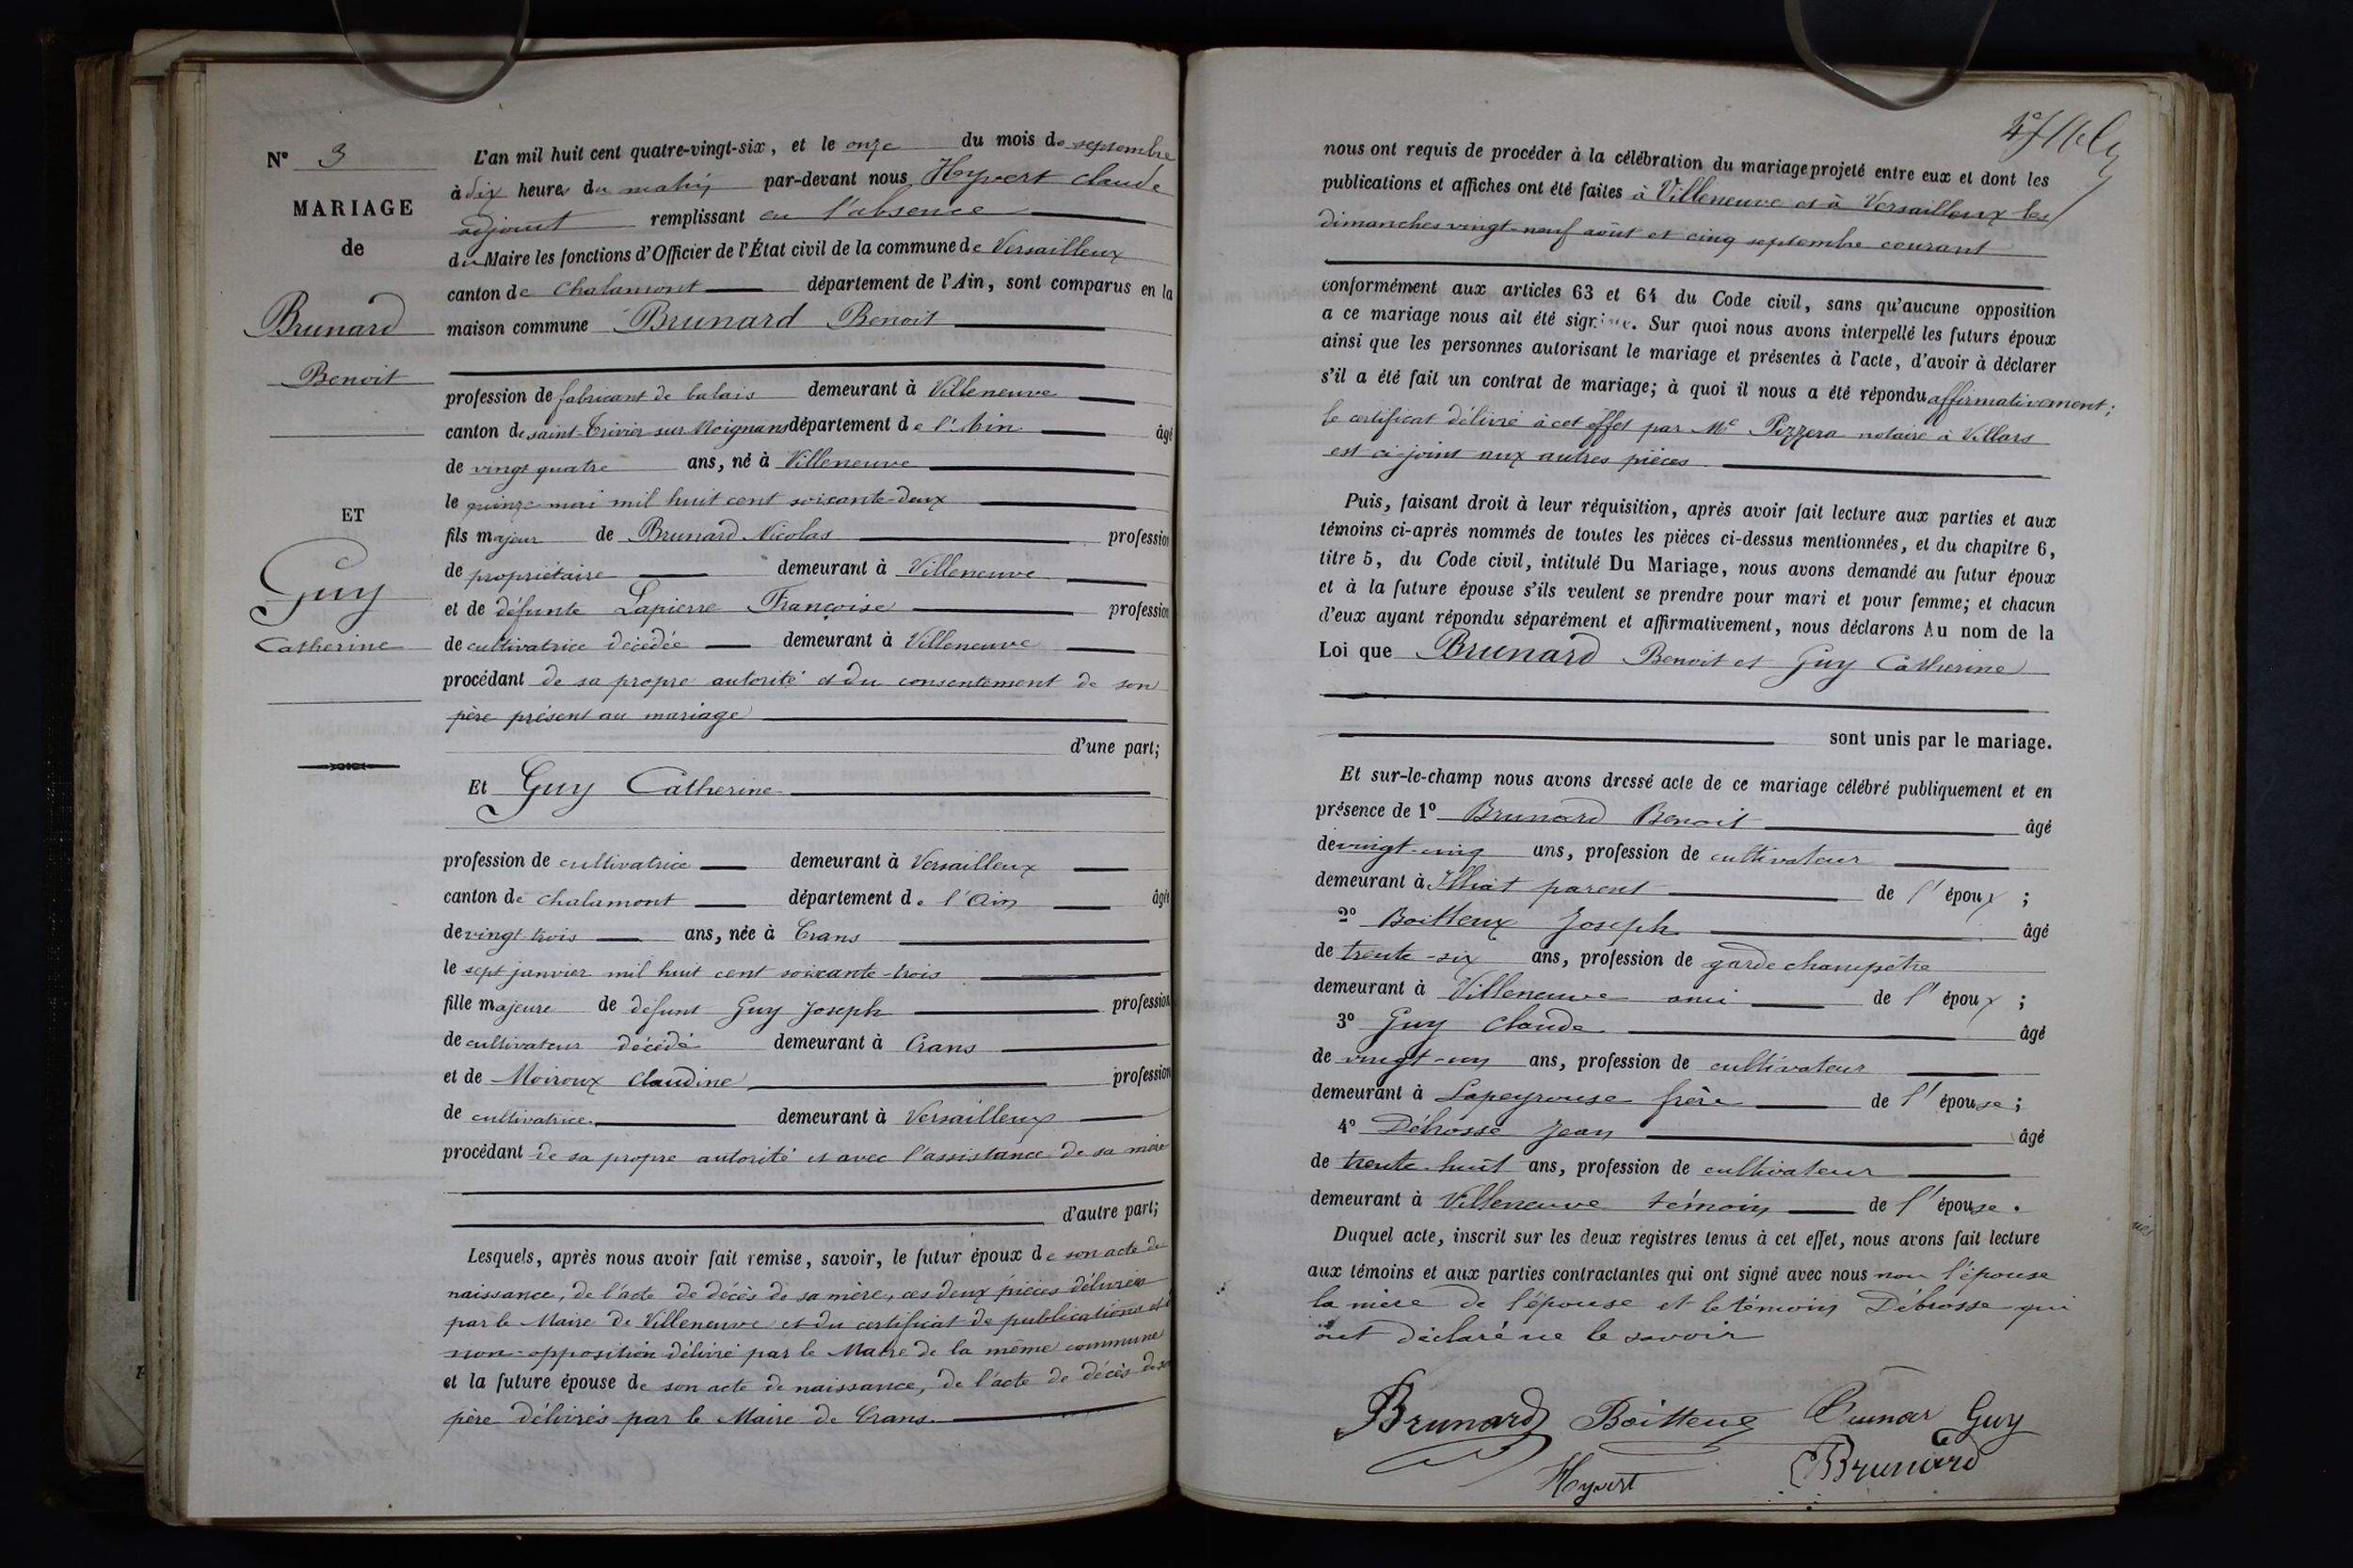 N° 3
MARIAGE
de
Brunard
Benoit
ET
Guy
Catherine
L'an mil huit cent quatre-vingt-six, et le onze du mois de septembre
à dix heures du matin par-devant nous Hyvert Claude
adjoint remplissant en l'absence
du Maire les fonctions d'Officier de l'État civil de la commune de Versailleux
canton de Chalamont département de l'Ain, sont comparus en la
maison commune Brunard Benoit
profession de fabricant de balais demeurant à Villeneuve
canton de saint-Trivier sur Moignans département de l'Ain âgé
de vingt quatre ans, né à Villeneuve
le quinze mai mil huit cent soixante-deux
fils majeur de Brunard Nicolas profession
de propriétaire demeurant à Villeneuve
et de défunte Lapierre Françoise profession
de cultivatrice décédée demeurant à Villeneuve
procédant de sa propre autorité et du consentement de son
père présent au mariage
d'une part;
Et Guy Catherine
profession de cultivatrice demeurant à Versailleux
canton de Chalamont département de l'Ain âgée
de vingt trois ans, née à Crans
le sept janvier mil huit cent soixante-trois
fille majeure de défunt Guy Joseph profession
de cultivateur décédé demeurant à Crans
et de Moiroux Claudine profession
de cultivatrice demeurant à Versailleux
procédant de sa propre autorité et avec l'assistance de sa mère
d'autre part;
Lesquels, après nous avoir fait remise, savoir, le futur époux de son acte de
naissance, de l'acte de décès de sa mère, ces deux pièces délivrées
par le Maire de Villeneuve et du certificat de publications et
non-opposition délivré par le Maire de la même commune
et la future épouse de son acte de naissance, de l'acte de décès de son
père délivrés par le Maire de Crans.
nous ont requis de procéder à la célébration du mariage projeté entre eux et dont les
publications et affiches ont été faites à Villeneuve et à Versailleux les
dimanches vingt-neuf août et cinq septembre courant
conformément aux articles 63 et 64 du Code civil, sans qu'aucune opposition
a ce mariage nous ait été signifiée. Sur quoi nous avons interpellé les futurs époux
ainsi que les personnes autorisant le mariage et présentes à l'acte, d'avoir à déclarer
s'il a été fait un contrat de mariage; à quoi il nous a été répondu affirmativement;
le certificat délivré à cet effet par Me Pizzera notaire à Villars
est ci-joint aux autres pièces.
Puis, faisant droit à leur réquisition, après avoir fait lecture aux parties et aux
témoins ci-après nommés de toutes les pièces ci-dessus mentionnées, et du chapitre 6,
titre 5, du Code civil, intitulé Du Mariage, nous avons demandé au futur époux
et à la future épouse s'ils veulent se prendre pour mari et pour femme; et chacun
d'eux ayant répondu séparément et affirmativement, nous déclarons Au nom de la
Loi que Brunard Benoit et Guy Catherine
sont unis par le mariage.
Et sur-le-champ nous avons dressé acte de ce mariage célébré publiquement et en
présence de 1° Brunard Benoit âgé
de vingt-cinq ans, profession de cultivateur
demeurant à Illiat parent de l'époux ;
2° Boitteux Joseph âgé
de trente-six ans, profession de garde champêtre
demeurant à Villeneuve ami de l'époux ;
3° Guy Claude âgé
de vingt-un ans, profession de cultivateur
demeurant à Lapeyrouse frère de l'épouse ;
4° Débrosse Jean âgé
de trente-huit ans, profession de cultivateur
demeurant à Villeneuve témoin de l'épouse.
Duquel acte, inscrit sur les deux registres tenus à cet effet, nous avons fait lecture
aux témoins et aux parties contractantes qui ont signé avec nous non l'épouse
la mère de l'épouse et le témoin Débrosse qui
ont déclaré ne le savoir
Brunard Boitteux Guy
Hyvert Brunard